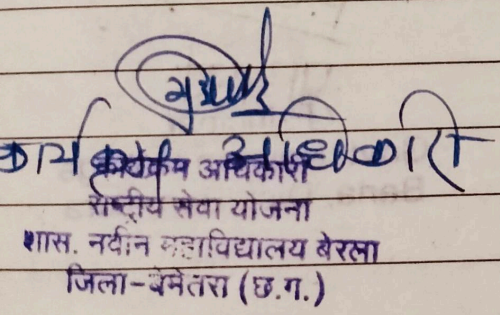 कार्यक्रम अधिकारी
कार्यक्रम अधिकारी
राष्ट्रीय सेवा योजना
शास. नवीन महाविद्यालय बेरला
जिला-बेमेतरा (छ.ग.)